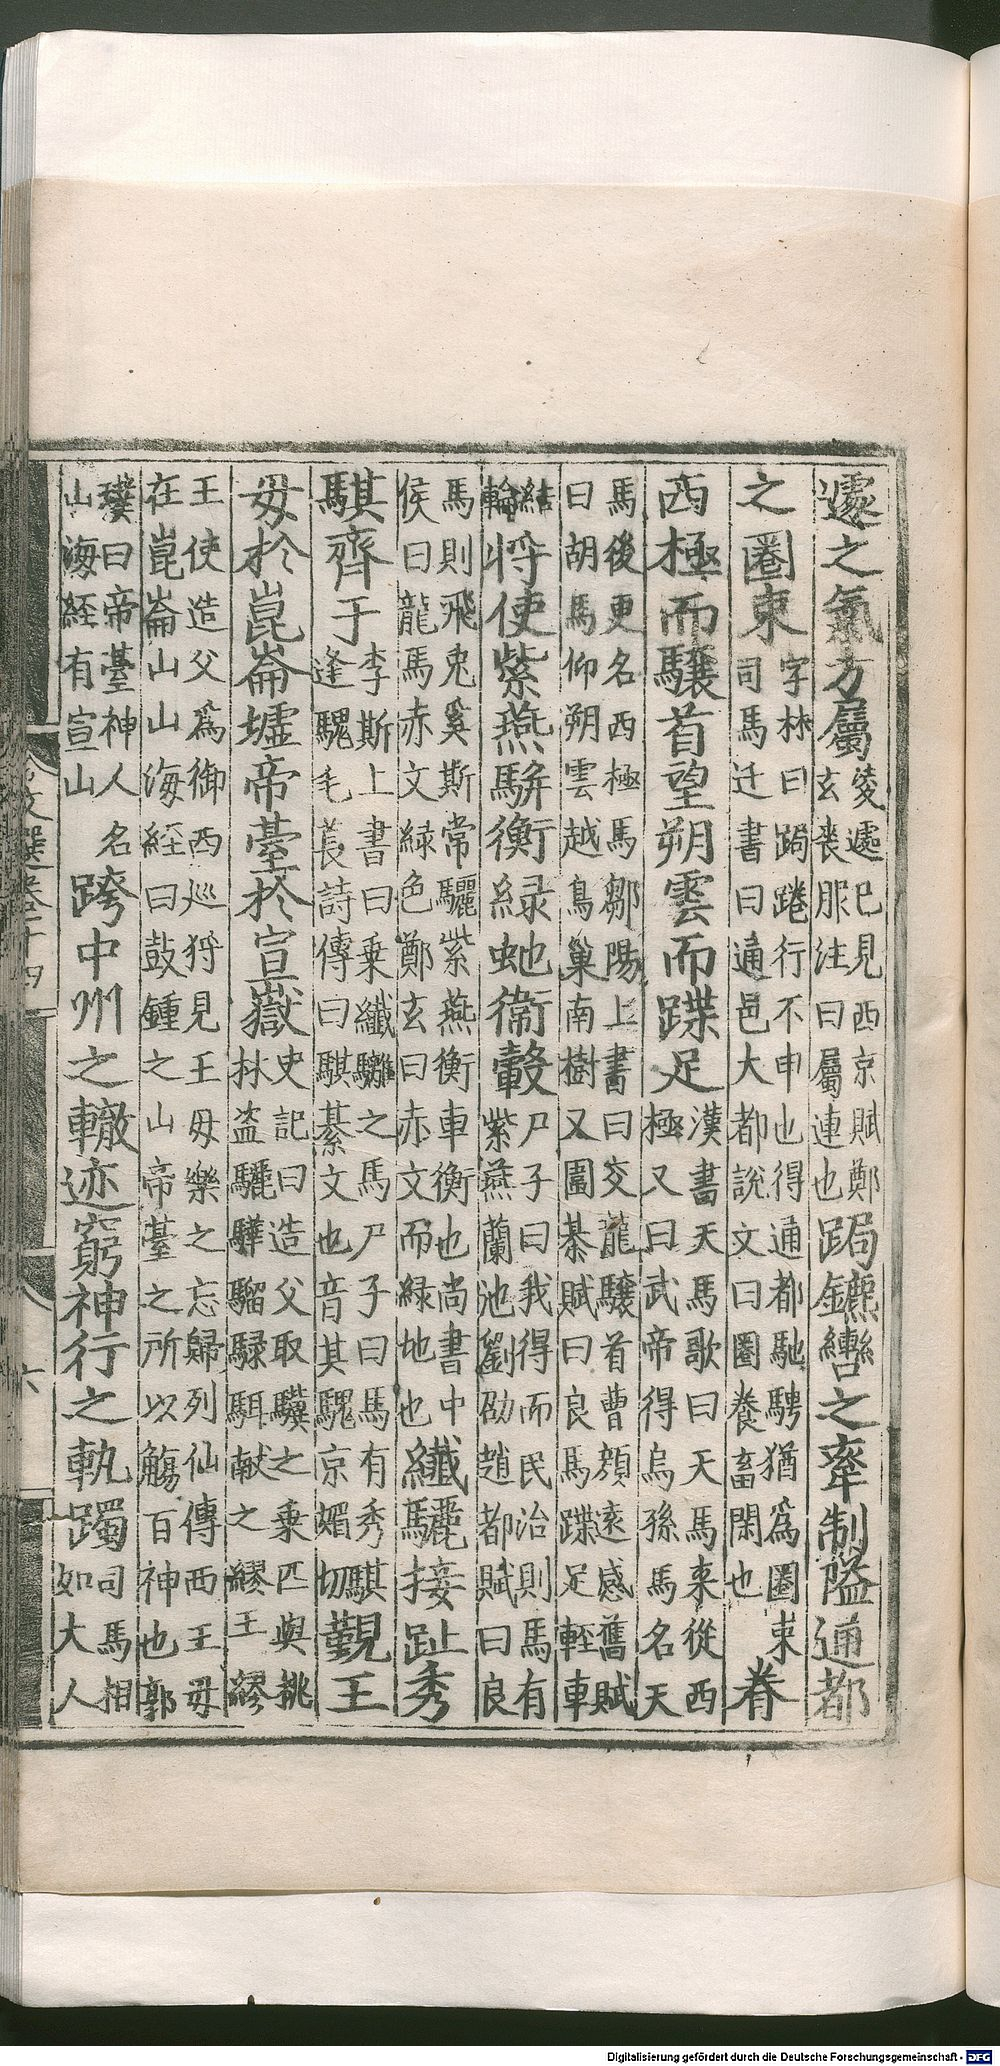 遽之氣方屬凌遽已見西京賦鄭玄喪服注曰屬連也跼鑣轡之牽制隘通都
之圈束字林曰跼踡行不申也得通都馳騁猶爲圈束司馬迁書曰通邑大都說文曰圈養畜閑也眷
西極而驤首望朔雲而蹀足漢書天馬歌曰天馬来從西極又曰武帝得烏孫馬名天
馬後更名西極馬鄒陽上書曰交龍驤首曹顔逺感舊賦曰胡馬仰朔雲越鳥巢南樹又圍棊賦曰良馬蹀足輕車
結輪將使紫燕駢衡緑虵衛轂尸子曰我得而民治則馬有紫燕蘭池劉劭趙都賦曰良
馬則飛兎奚斯常驪紫燕衡車衡也尚書中侯曰龍馬赤文緑色鄭玄曰赤文而緑地也纎驪接趾秀
騏齊于李斯上書曰乗纎驪之馬尸子曰馬有秀騏逢騩毛萇詩傳曰騏綦文也音其騩京媚切覲王
毋於崑崙墟帝臺於宣嶽史記曰造父取驥之乗匹與桃林盗驪驊騮騄駬献之繆王繆
王使造父爲御西巡狩見王毋樂之忘歸列仙傳西王毋在崑崙山山海経曰鼓鍾之山帝臺之所以觴百神也郭
璞曰帝臺神人名山海経有宣山跨中州之轍迹窮神行之軌躅司馬相如大人
文選卷十四
六
Digitalisierung gefördert durch die Deutsche Forschungsgemeinschaft - DFG